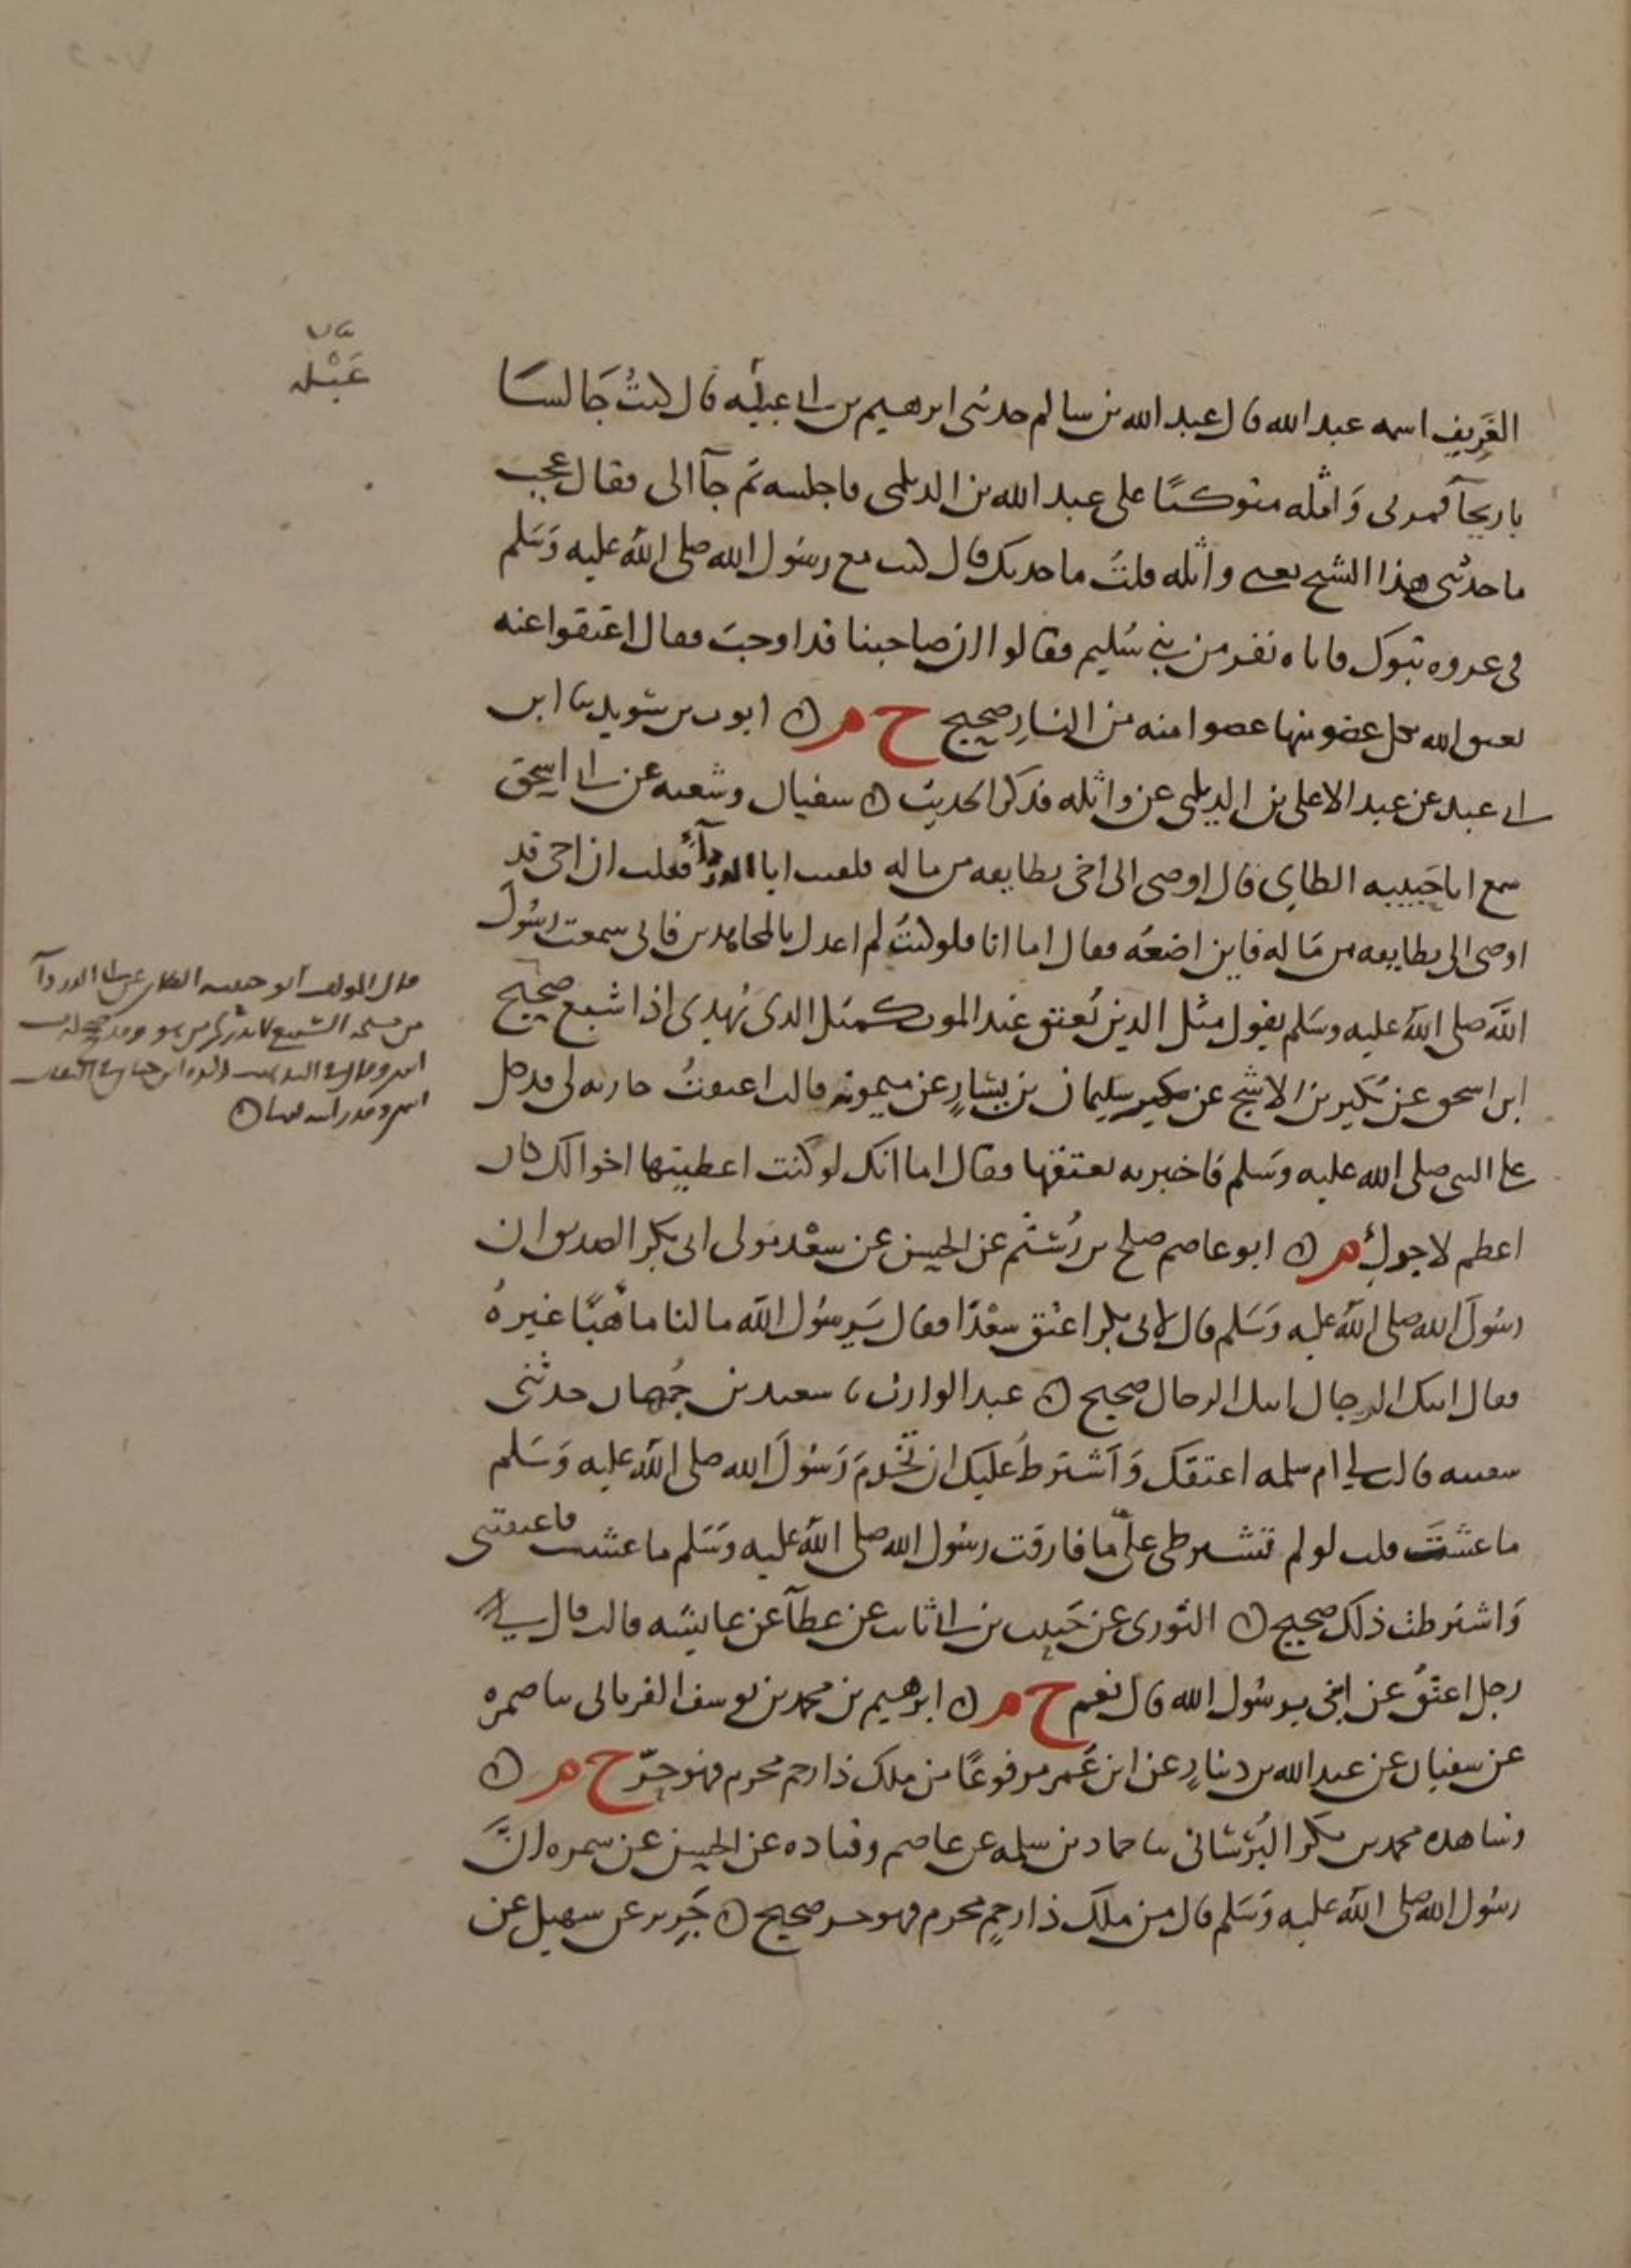 الغَرِيف اسمه عبد الله قال عبد الله بن سالم حدثنى ابرهيم بن ابى عبلة قال كنتُ جَالسَا
باريحآ فمر بى وَاثله متوكئًا على عبد الله بن الديلمى فاجلسه ثم جآ الى فقال عجب
ما حدثنى هذا الشيخ يعنى واثله قلتُ ما حدثك قال كنت مع رسُول الله صلى الله عليه وَسَلم
فى غزوه تبوك فاتاه نفر من بنى سُليم فقالوا ان صاحبنا قد اوجبَ فقال اعتقوا عنه
يعتق الله بكل عضو منها عضوا منه من النار صحيح ح م ٥ ايوب بن سُويد ثنا ابن
ابى عبله عن عبد الاعلى بن الديلمى عن واثله فذكر الحديث ٥ سفيان وشعبه عن ابى اسحق
سمع ابا حَبيبه الطاى قال اوصى الى اخى بطايفه من ماله فلقيت ابا الدردآء فقلت ان اخى قد
اوصى الى بطايفه من مَاله فاين اضعُه فقال اما انا فلو كنتُ لم اعدل بالمجاهدين فانى سمعت رسُول
الله صلى الله عليه وسَلم يقول مثل الذين يُعتق عند الموت كمثل الذى يُهدى اذا شبع صحيح
ابن اسحق عن بُكير بن الاشج عن سليمان بن يسَارٍ عن ميمونه قالت اعتقتُ جاريه لى فدخل
على النبى صلى الله عليه وسَلم فاخبرته بعتقها فقال اما انك لو كنت اعطيتها اخوالك كان
اعظم لاجركِ م ٥ ابو عاصم صلح بن رُستُم عن الحسن عن سعْد مولى ابى بكر الصديق ان
رسُولَ الله صلى الله عليه وَسَلم قال لابى بكر اعتق سعْدًا فقال يَرسُول الله ما لنا مَاهِنًا غيرهُ
فقال اتتك الرجال اتتك الرجال صحيح ٥ عبد الوارث ثنا سعيد بن جُمهان حدثنى
سفينه قال قالت لى ام سلمه اعتقك وَاَشترطُ عليك ان تخْدمَ رَسُولَ الله صلى الله عليه وَسَلم
ما عشتَ قلت لو لم تشترطى علىّ ما فارقت رسُول الله صلى الله عليه وَسَلم ما عشت فاعتقتنى
وَاشترطت ذلك صحيح ٥ الثورى عن حَبيب بن ابى ثابت عن عطآ عن عايشه قالت قال
رجل اعتقُ عن ابى يرسُول الله قال نعم ح م ٥ ابرهيم بن محمد بن يوسف الفريابى ثنا ضمره
عن سفيان عن عبد الله بن دينارٍ عن ابن عُمر مرفوعًا من ملك ذا رحم محرم فهو حرّ ح م ٥
وشاهده محمد بن بكر البُرْسَانى ثنا حماد بن سلمه عن عاصم وقتاده عن الحسن عن سمره انَّ
رسُول الله صلى الله عليه وَسَلم قال من ملك ذا رحمٍ محرم فهو حر صحيح ٥ جَرِير عن سهيل عن
عَبْلة
قال المولف ابو حبيبه الطاى عن ابى الدردآ